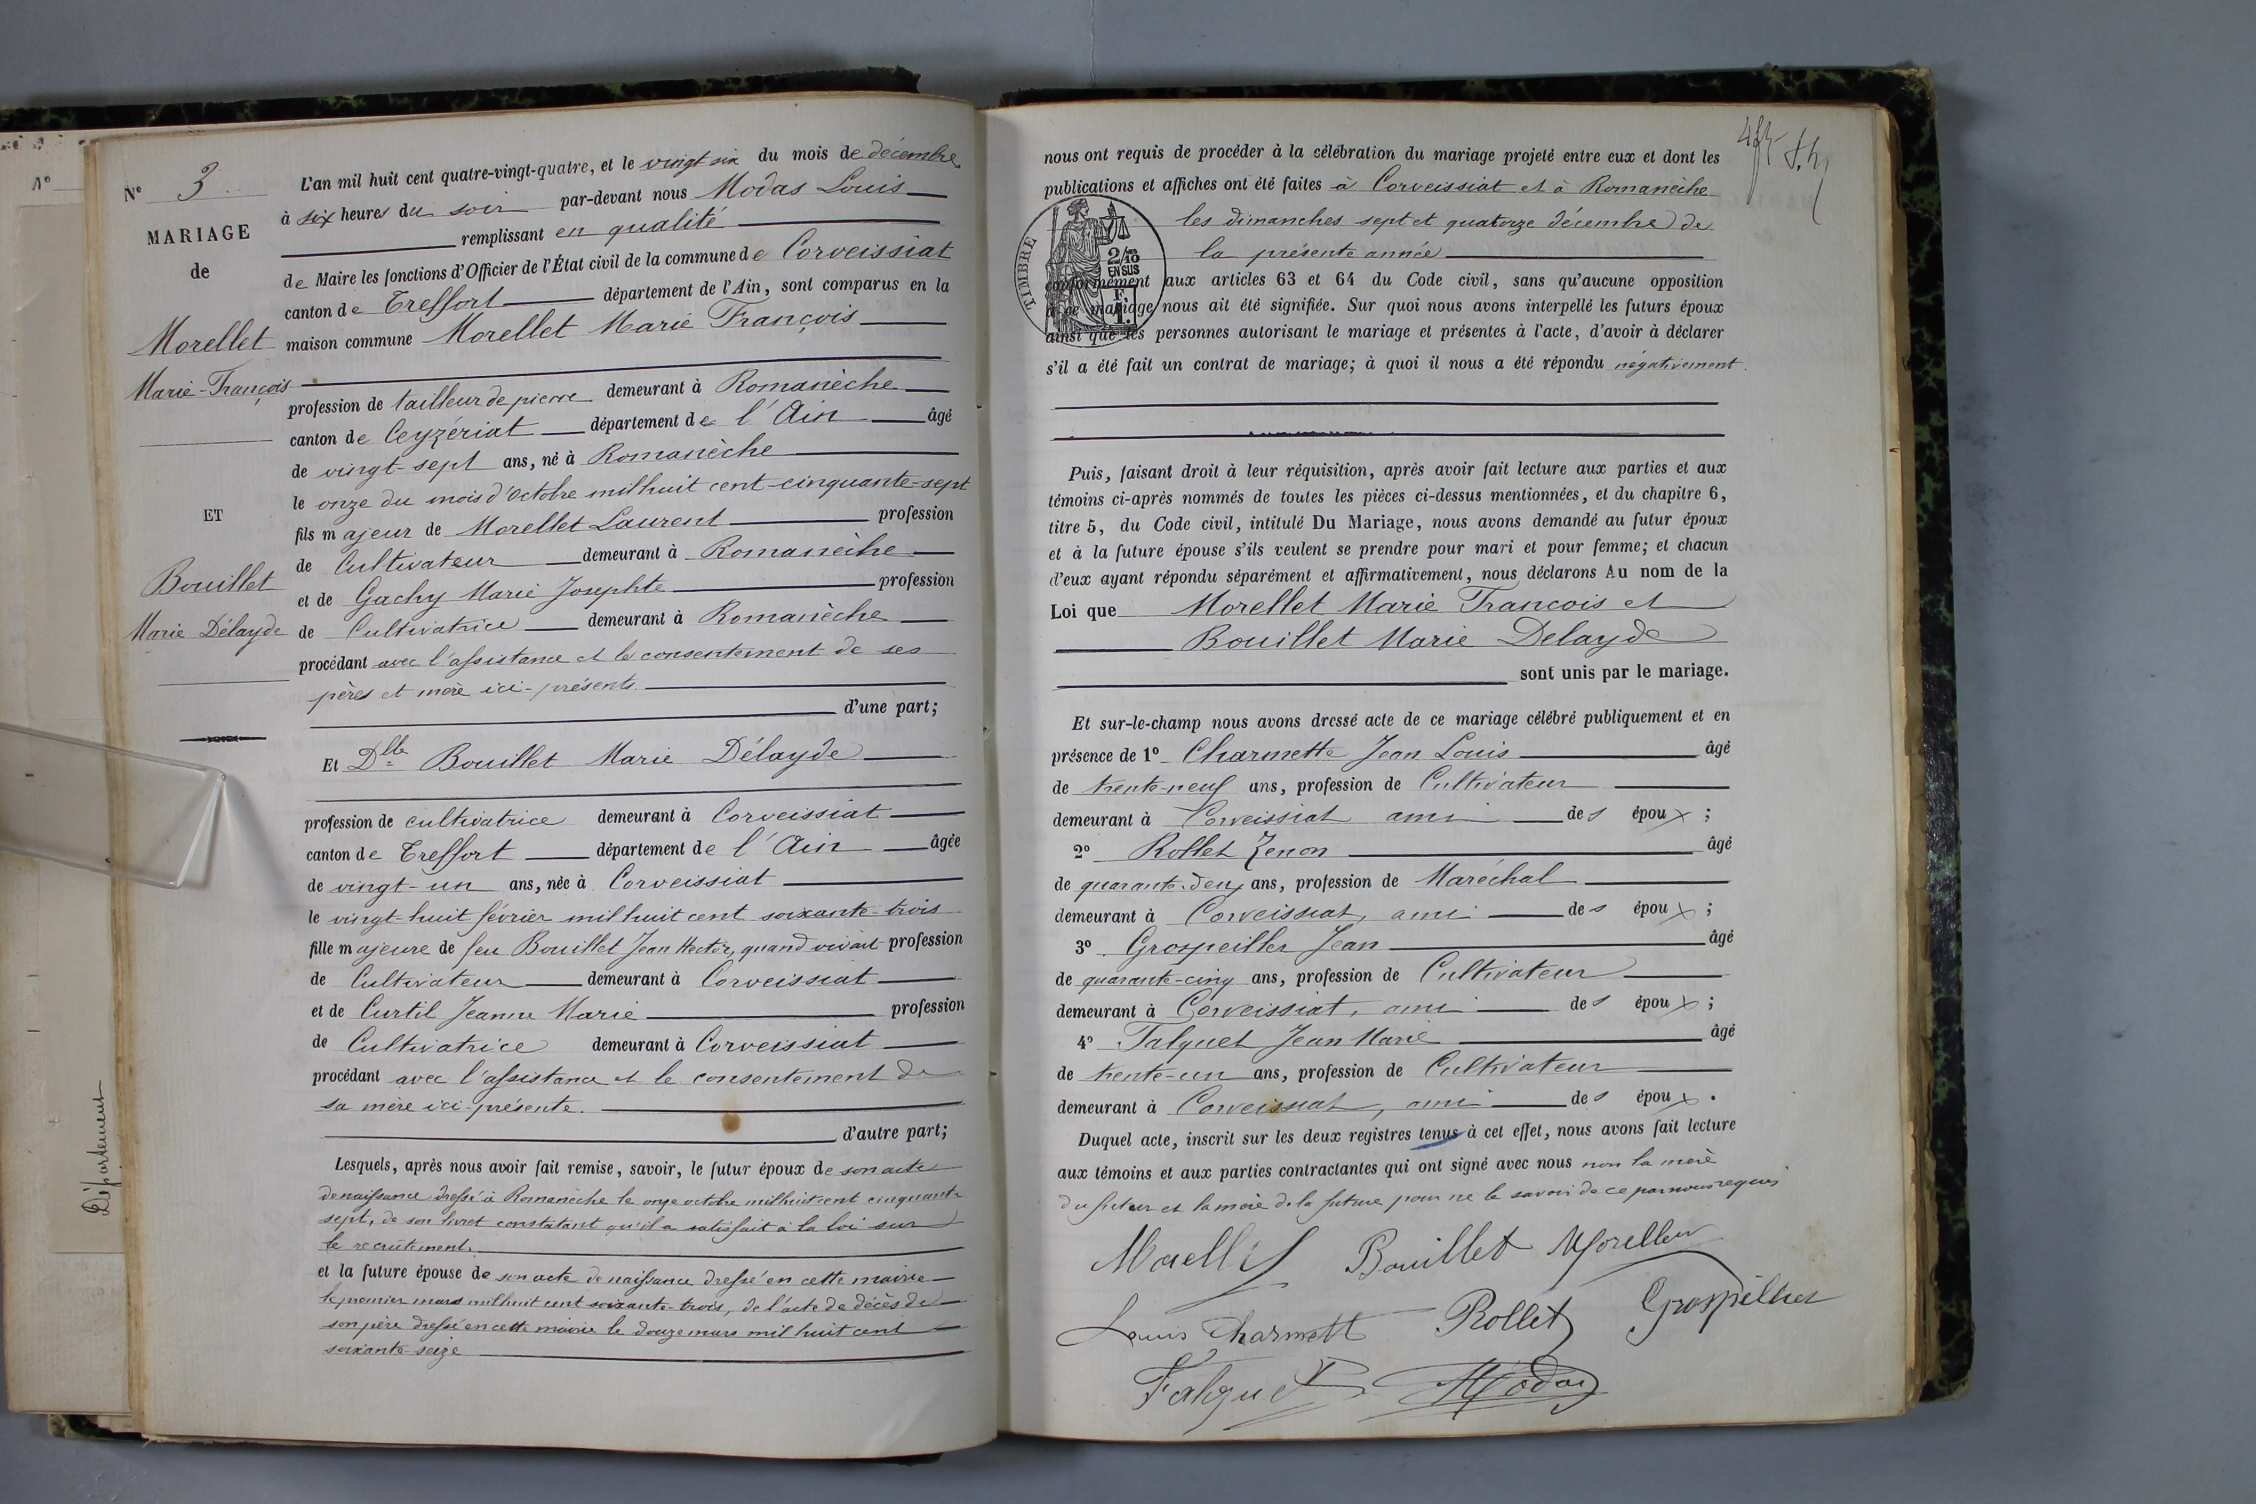 N° 3
MARIAGE
de
Morellet
Marie-François
ET
Bouillet
Marie Délayde
Département
L'an mil huit cent quatre-vingt-quatre, et le vingt six du mois de décembre
à six heures du soir par-devant nous Modas Louis
remplissant en qualité
de Maire les fonctions d'Officier de l'État civil de la commune de Corveissiat
canton de Treffort département de l'Ain, sont comparus en la
maison commune Morellet Marie François
profession de tailleur de pierre demeurant à Romanèche
canton de Ceyzériat département de l'Ain âgé
de vingt-sept ans, né à Romanèche
le onze du mois d'Octobre mil huit cent-cinquante-sept
fils majeur de Morellet Laurent profession
de Cultivateur demeurant à Romanèche
et de Gachy Marie Josephte profession
de Cultivatrice demeurant à Romanèche
procédant avec l'assistance et le consentement de ses
pères et mère ici-présents
d'une part;
Et Dlle Bouillet Marie Délayde
profession de cultivatrice demeurant à Corveissiat
canton de Treffort département de l'Ain âgée
de vingt-un ans, née à Corveissiat
le vingt-huit février mil huit cent soixante-trois
fille majeure de feu Bouillet Jean Hector, quand vivait profession
de Cultivateur demeurant à Corveissiat
et de Curtil Jeanne Marie profession
de Cultivatrice demeurant à Corveissiat
procédant avec l'assistance et le consentement de
sa mère ici-présente.
d'autre part;
Lesquels, après nous avoir fait remise, savoir, le futur époux de son acte
de naissance dressé à Romanèche le onze octobre mil huit cent cinquante
sept, de son livret constatant qu'il a satisfait à la loi sur
le recrutement.
et la future épouse de son acte de naissance dressé en cette mairie
le premier mars mil huit cent soixante-trois, de l'acte de décès de
son père dressé en cette mairie le douze mars mil huit cent
soixante-seize
nous ont requis de procéder à la célébration du mariage projeté entre eux et dont les
publications et affiches ont été faites à Corveissiat et à Romanèche
les dimanches sept et quatorze décembre de
la présente année
TIMBRE
2/10
EN SUS
F.
1.
conformément aux articles 63 et 64 du Code civil, sans qu'aucune opposition
à ce mariage nous ait été signifiée. Sur quoi nous avons interpellé les futurs époux
ainsi que les personnes autorisant le mariage et présentes à l'acte, d'avoir à déclarer
s'il a été fait un contrat de mariage; à quoi il nous a été répondu négativement.
Puis, faisant droit à leur réquisition, après avoir fait lecture aux parties et aux
témoins ci-après nommés de toutes les pièces ci-dessus mentionnées, et du chapitre 6,
titre 5, du Code civil, intitulé Du Mariage, nous avons demandé au futur époux
et à la future épouse s'ils veulent se prendre pour mari et pour femme; et chacun
d'eux ayant répondu séparément et affirmativement, nous déclarons Au nom de la
Loi que Morellet Marie François et
Bouillet Marie Delayde
sont unis par le mariage.
Et sur-le-champ nous avons dressé acte de ce mariage célébré publiquement et en
présence de 1° Charmette Jean Louis âgé
de trente-neuf ans, profession de Cultivateur
demeurant à Corveissiat ami des époux ;
2° Rollet Zenon âgé
de quarante-deux ans, profession de Maréchal
demeurant à Corveissiat, ami des époux ;
3° Grospeiller Jean âgé
de quarante-cinq ans, profession de Cultivateur
demeurant à Corveissiat, ami des époux ;
4° Falquet Jean Marie âgé
de trente-un ans, profession de Cultivateur
demeurant à Corveissiat, ami des époux .
Duquel acte, inscrit sur les deux registres tenus à cet effet, nous avons fait lecture
aux témoins et aux parties contractantes qui ont signé avec nous non la mère
du futur et la mère de la future pour ne le savoir de ce par nous requis
Bouillet Morellet
Louis Charmett Rollet Grospellier
Falquet Modas